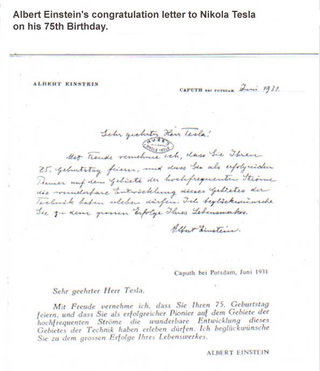 Albert Einstein's congratulation letter to Nikola Tesla
on his 75th Birthday.
ALBERT EINSTEIN
CAPUTH BEI POTSDAM, Juni 1931.
Sehr geehrter Herr Tesla!
Mit Freude vernehme ich, dass Sie Ihren
75. Geburtstag feiern, und dass Sie als erfolgreicher
Pionier auf dem Gebiete der hochfrequenten Ströme
die wunderbare Entwicklung dieses Gebietes der
Technik haben erleben dürfen. Ich beglückwünsche
Sie zu dem grossen Erfolge Ihres Lebenswerkes.
Albert Einstein.
Caputh bei Potsdam, Juni 1931
Sehr geehrter Herr Tesla.
Mit Freude vernehme ich, dass Sie Ihren 75. Geburtstag
feiern, und dass Sie als erfolgreicher Pionier auf dem Gebiete der
hochfrequenten Ströme die wunderbare Entwicklung dieses
Gebietes der Technik haben erleben dürfen. Ich beglückwünsche
Sie zu dem grossen Erfolge Ihres Lebenswerkes.
ALBERT EINSTEIN